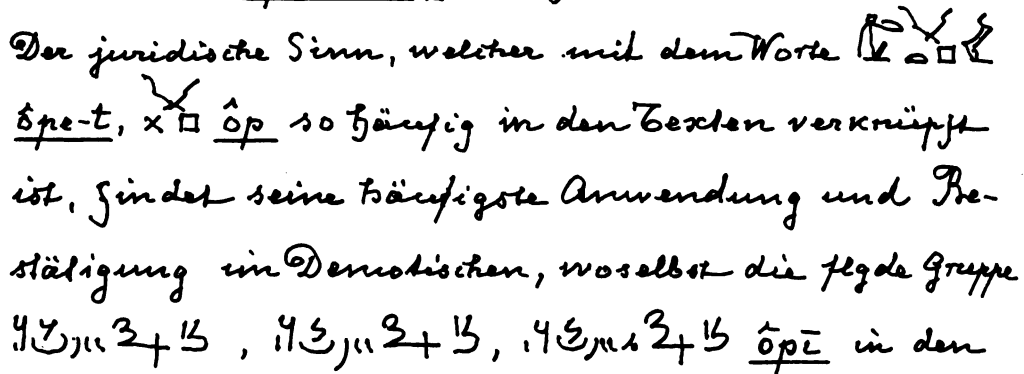 Der juridische Sinn, welcher mit dem Worte
ôpe-t, ôp so häufig in den Texten verknüpft
ist, findet seine häufigste Anwendung und Be-
stätigung im Demotischen, woselbst die flgde Gruppe
, , ôpī in den